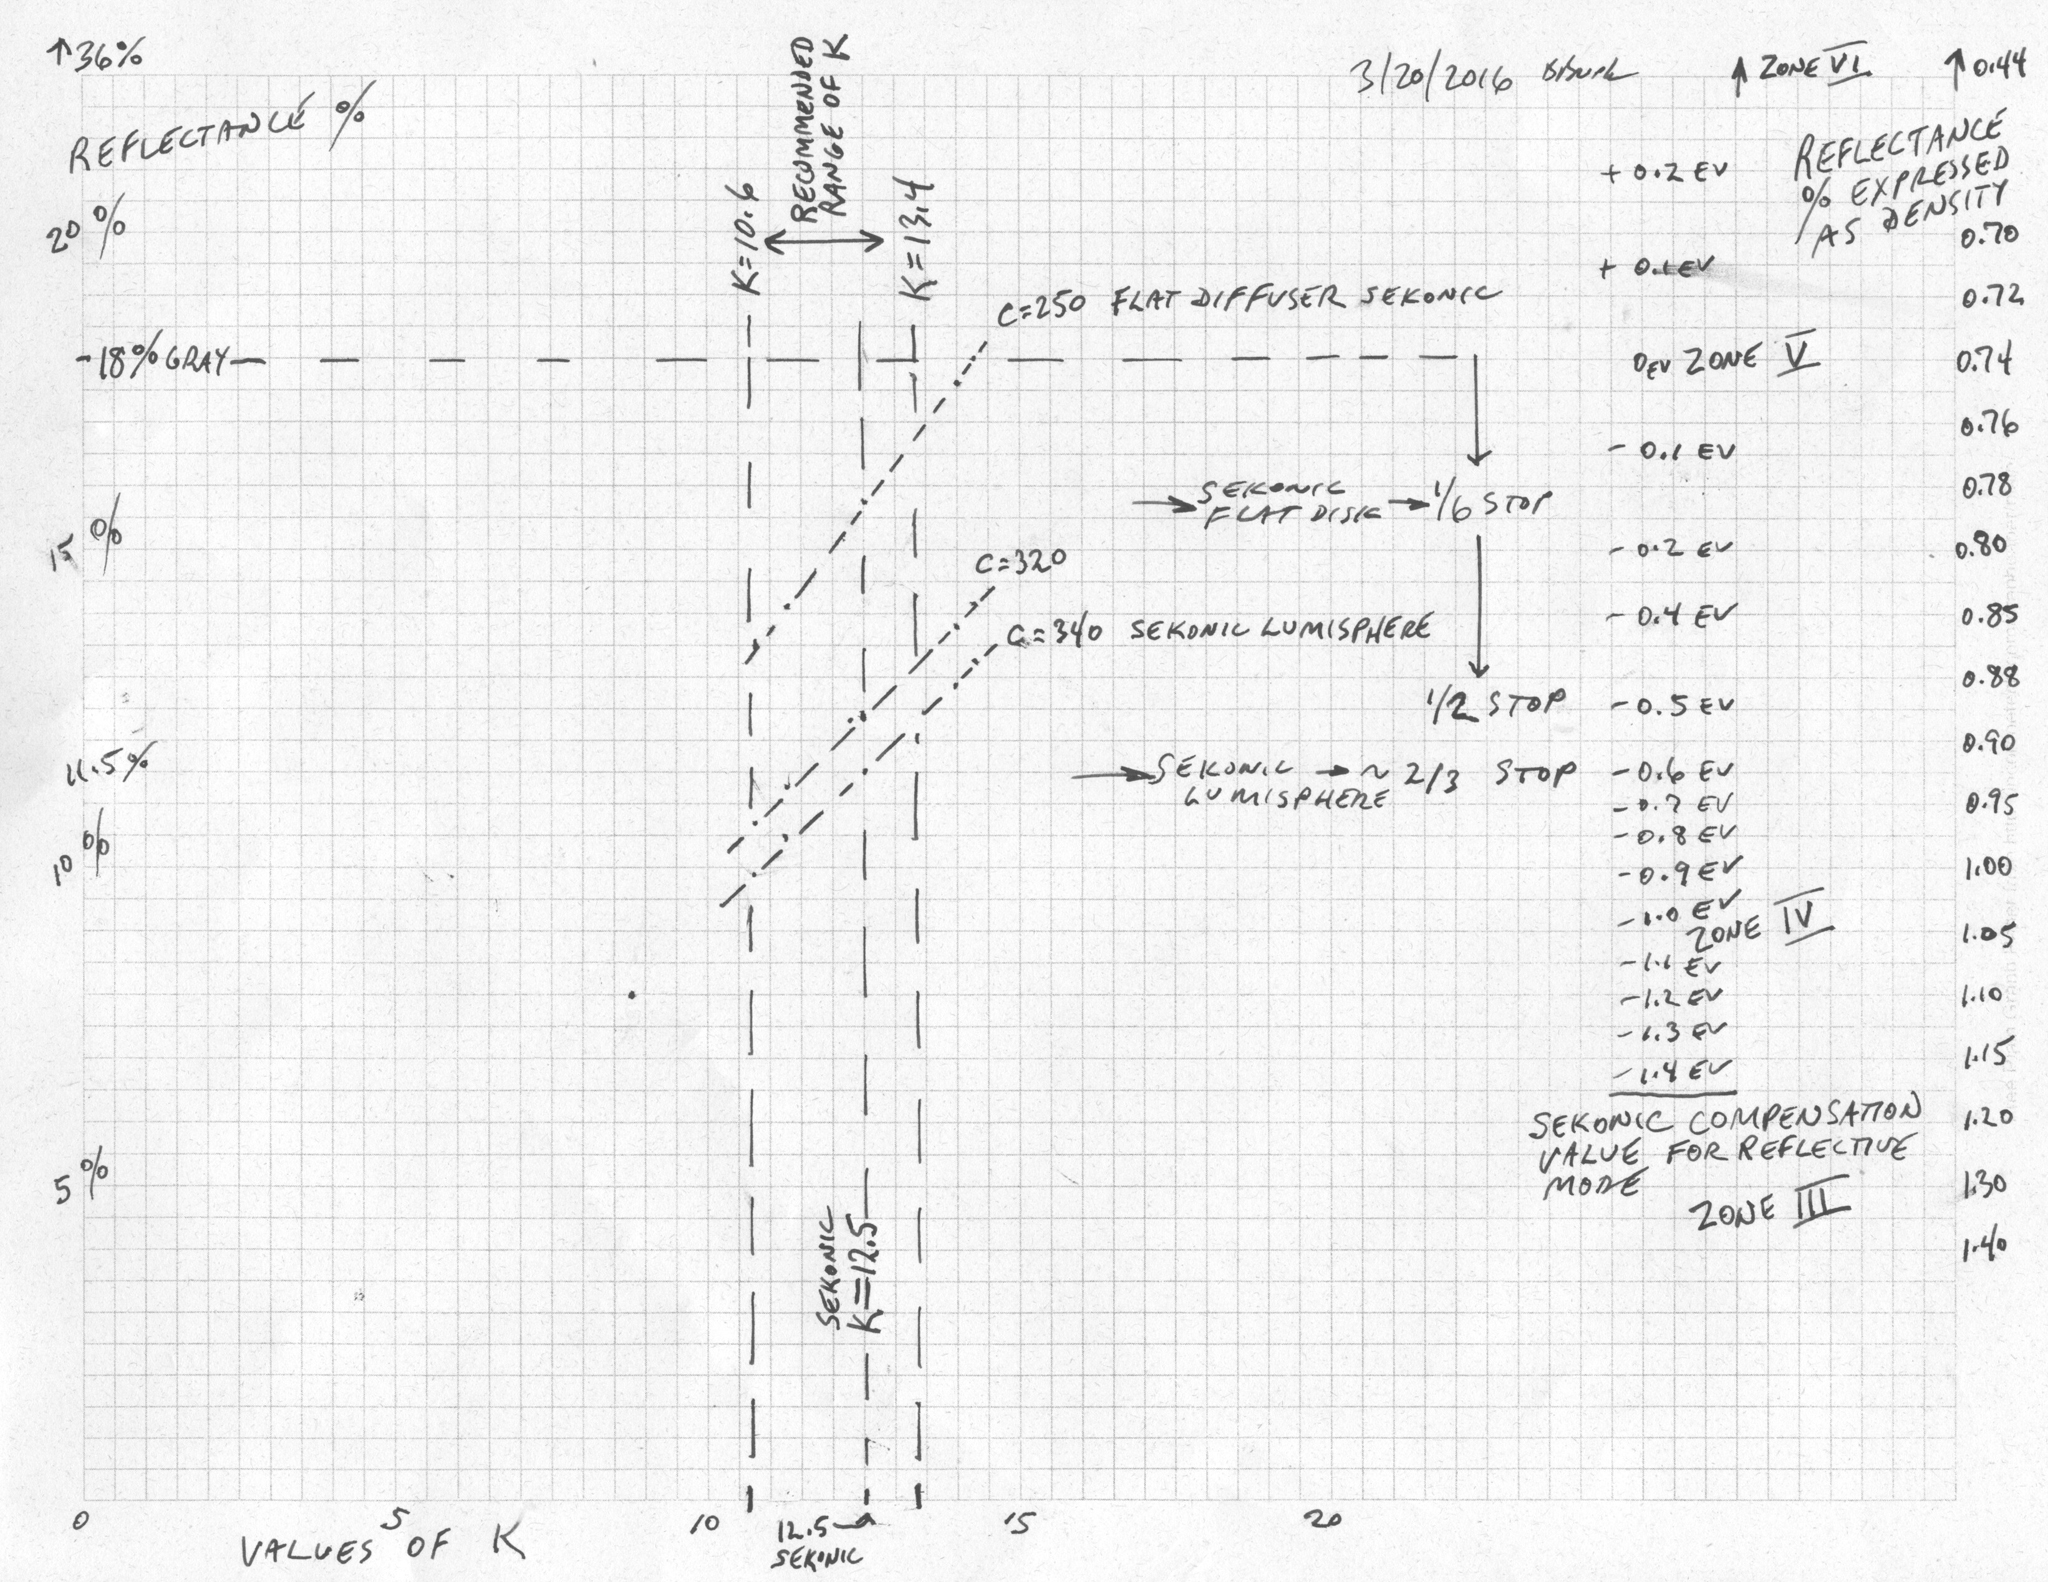 ↑36%
3/20/2016
↑ ZONE VI
↑ 0.44
REFLECTANCE %
RECOMMENDED
RANGE OF K
REFLECTANCE
% EXPRESSED
AS DENSITY
+ 0.2 EV
20%
K=10.6
K=13.4
0.70
+ 0.1 EV
C=250 FLAT DIFFUSER SEKONIC
0.72
-18% GRAY
0EV ZONE V
0.74
0.76
- 0.1 EV
SEKONIC
FLAT DISK → 1/6 STOP
0.78
15%
- 0.2 EV
0.80
C=320
- 0.4 EV
0.85
C=340 SEKONIC LUMISPHERE
0.88
1/2 STOP
- 0.5 EV
0.90
11.5%
SEKONIC → ~ 2/3 STOP
LUMISPHERE
- 0.6 EV
- 0.7 EV
0.95
- 0.8 EV
10%
- 0.9 EV
1.00
- 1.0 EV
ZONE IV
1.05
- 1.1 EV
- 1.2 EV
1.10
- 1.3 EV
1.15
- 1.4 EV
SEKONIC COMPENSATION
VALUE FOR REFLECTIVE
MODE
1.20
5%
1.30
ZONE III
1.40
SEKONIC
K=12.5
0
5
10
15
20
12.5
SEKONIC
VALUES OF K